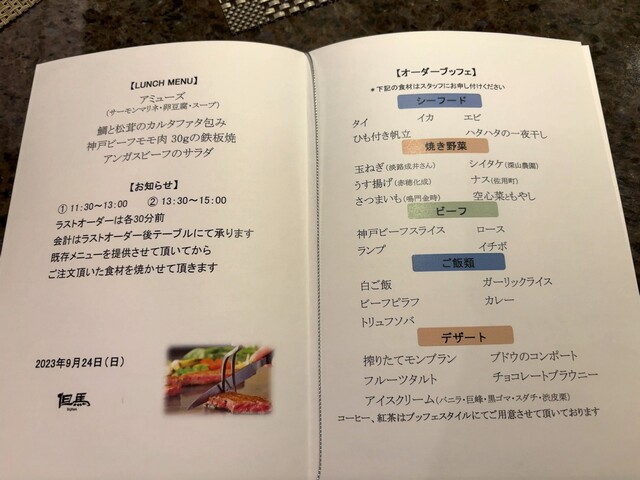 【LUNCH MENU】
アミューズ
(サーモンマリネ・卵豆腐・スープ)
鯛と松茸のカルタファタ包み
神戸ビーフモモ肉 30gの鉄板焼
アンガスビーフのサラダ
【お知らせ】
① 11:30~13:00 ② 13:30~15:00
ラストオーダーは各30分前
会計はラストオーダー後テーブルにて承ります
既存メニューを提供させて頂いてから
ご注文頂いた食材を焼かせて頂きます
2023年9月24日(日)
但馬
【オーダーブッフェ】
*下記の食材はスタッフにお申し付けください
シーフード
タイ イカ エビ
ひも付き帆立 ハタハタの一夜干し
焼き野菜
玉ねぎ(淡路成井さん) シイタケ(深山農園)
うす揚げ(赤穂化成) ナス(佐用町)
さつまいも(鳴門金時) 空心菜ともやし
ビーフ
神戸ビーフスライス ロース
ランプ イチボ
ご飯類
白ご飯 ガーリックライス
ビーフピラフ カレー
トリュフソバ
デザート
搾りたてモンブラン ブドウのコンポート
フルーツタルト チョコレートブラウニー
アイスクリーム(バニラ・巨峰・黒ゴマ・スダチ・渋皮栗)
コーヒー、紅茶はブッフェスタイルにてご用意させて頂いております